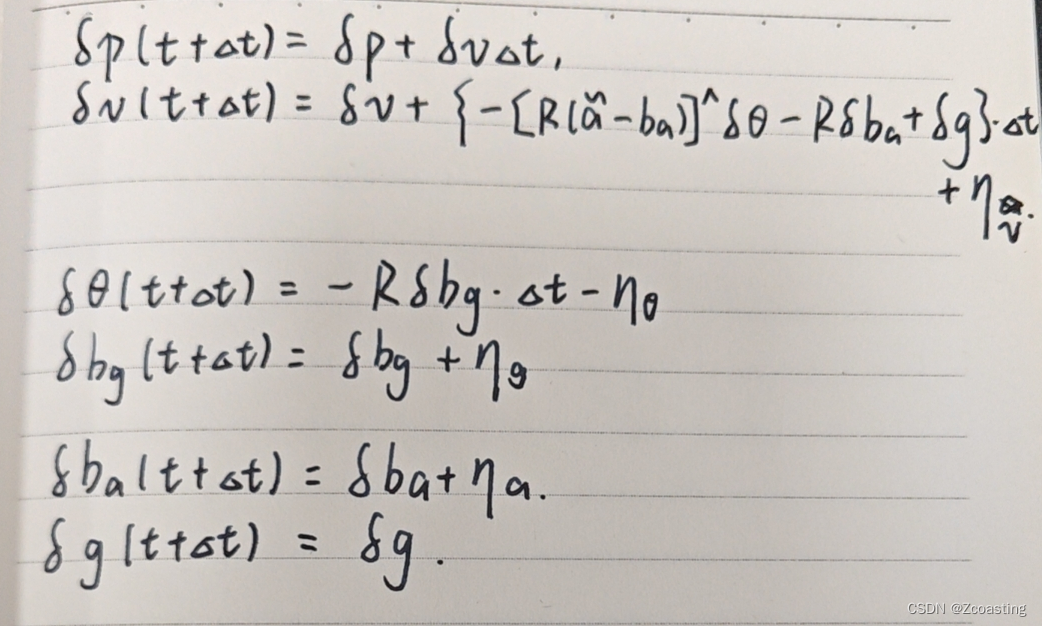 δp(t+Δt) = δp + δvΔt,
δv(t+Δt) = δv + {-[R(ã-ba)]^δθ - Rδba + δg}·Δt
+ ηv.
δθ(t+Δt) = -Rδbg·Δt - ηθ
δbg(t+Δt) = δbg + ηg
δba(t+Δt) = δba + ηa.
δg(t+Δt) = δg.
CSDN @Zcoasting